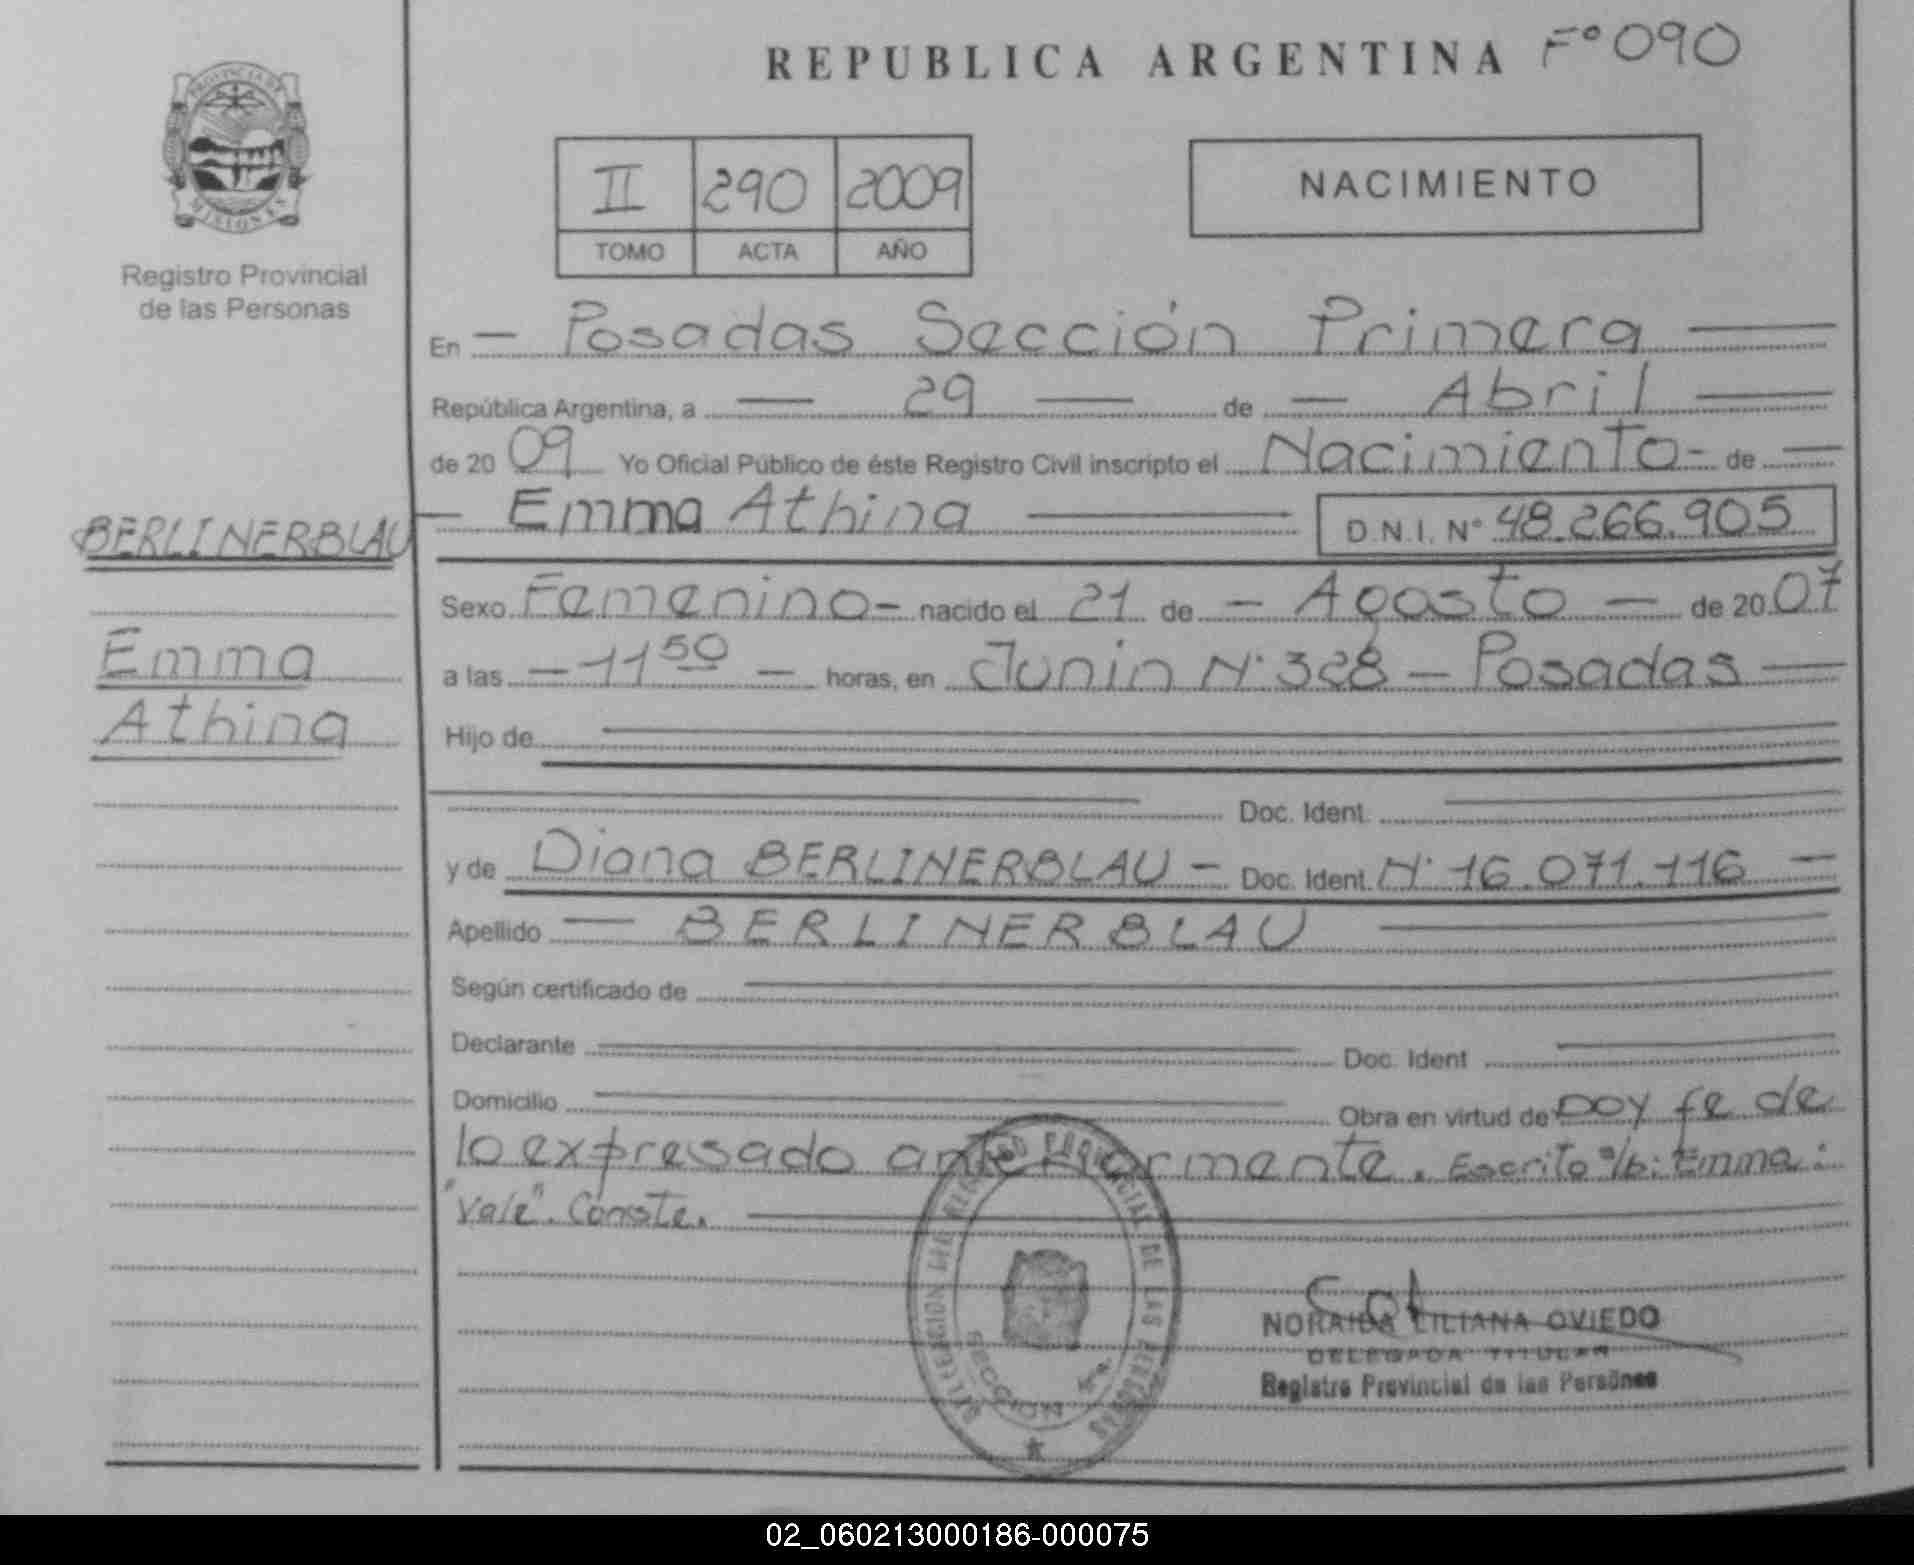 REPUBLICA ARGENTINA F° 090
PROVINCIA DE
MISIONES
Registro Provincial
de las Personas
II 290 2009
TOMO ACTA AÑO
NACIMIENTO
En — Posadas Sección Primera —
República Argentina, a — 29 — de — Abril —
de 20 09 Yo Oficial Público de éste Registro Civil inscripto el Nacimiento - de —
— Emma Athina — D.N.I. N° 48.266.905
BERLINERBLAU
Emma
Athina
Sexo Femenino - nacido el 21 de — Agosto — de 20 07
a las — 11 50 — horas, en Junin N° 328 — Posadas —
Hijo de
Doc. Ident.
y de Diana BERLINERBLAU - Doc. Ident. N° 16.071.116 —
Apellido — BERLINERBLAU —
Según certificado de
Declarante Doc. Ident
Domicilio Obra en virtud de Doy fe de
lo expresado anteriormente. Escrito s/b: Emma:
"Vale". Conste.
DELEGACION DEL REGISTRO PROVINCIAL DE LAS PERSONAS
SECCION 1ra.
NORAIDA LILIANA OVIEDO
DELEGADA TITULAR
Registro Provincial de las Personas
02_060213000186-000075